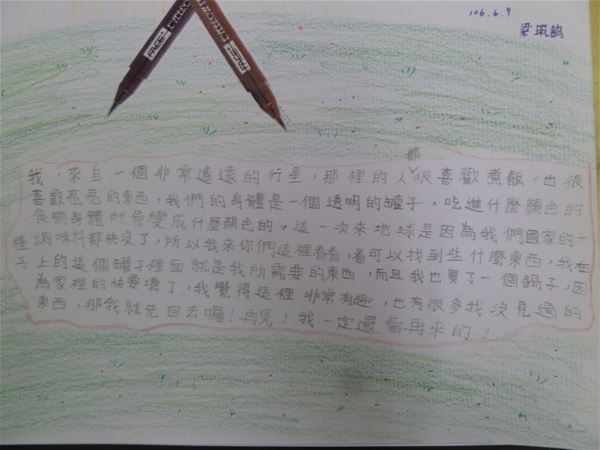 106.6.9
梁
我,來自一個非常遙遠的行星,那裡的人都很喜歡煮飯。也很
喜歡亮亮的東西,我們的身體是一個透明的罐子,吃進什麼顏色的
食物身體就會變成什麼顏色的。這一次來地球是因為我們國家的一
種調味料都快沒了,所以我來你們這裡看看,看可以找到些什麼東西,我在
子上的這個罐子裡面就是我所需要的東西,而且我也買了一個鍋子,因
為家裡的快要壞了,我覺得這裡非常有趣,也有很多我沒見過的
東西,那我就先回去囉!再見!我一定還會再來的!